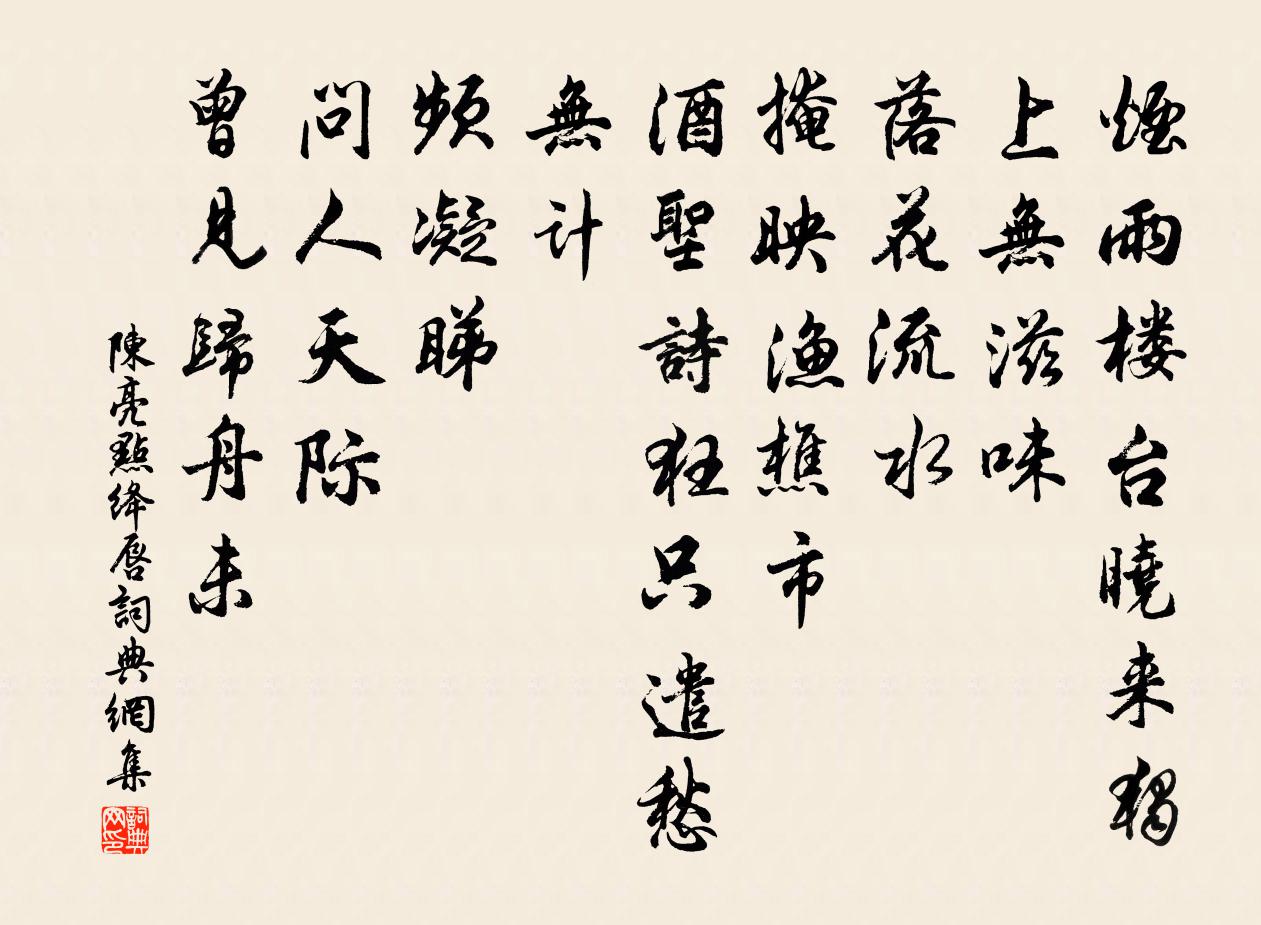 煙雨楼台曉来獨
上無滋味
落花流水
掩映漁樵市
酒聖詩狂只遣愁
無计
頻凝睇
問人天际
曾見歸舟未
陳亮點绛唇詞典網集
詞典
网印